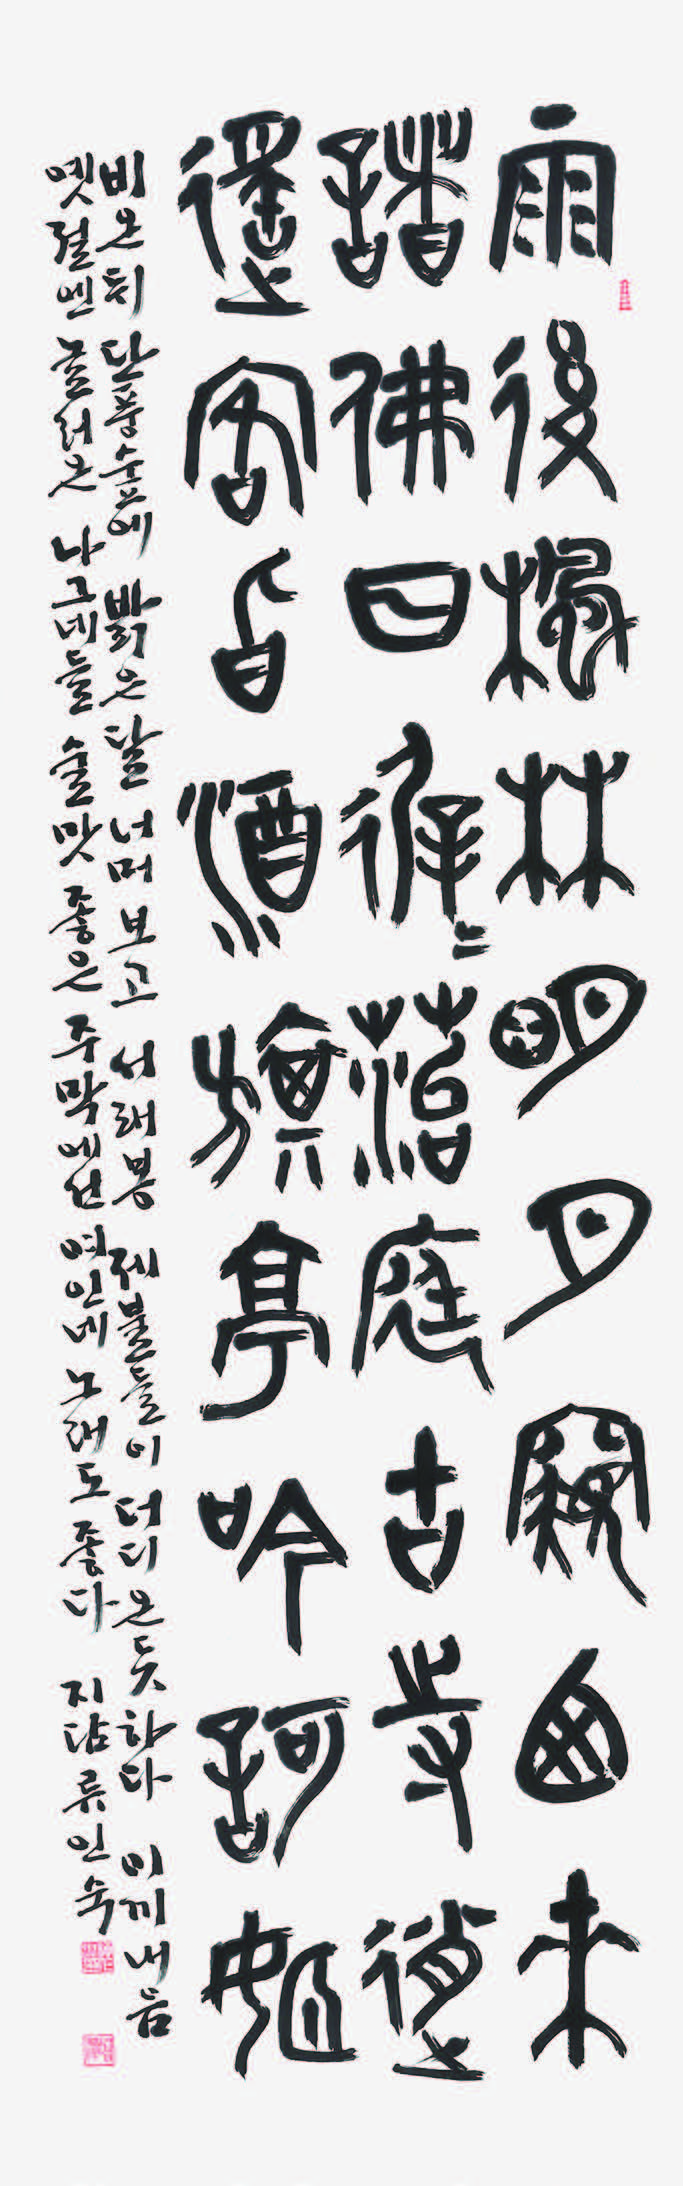 雨後楓林明月窺西來
諸佛曰徐〻菭庭古寺逍
還客旨酒旗亭吟訶姬
비온 뒤 단풍숲에 밝은 달 너머 보고 서래봉 제불들이 더디 온듯 하다 이끼내음
옛절엔 놀러온 나그네들 술맛 좋은 주막에선 여인네 노래도 좋다 지담 류인숙